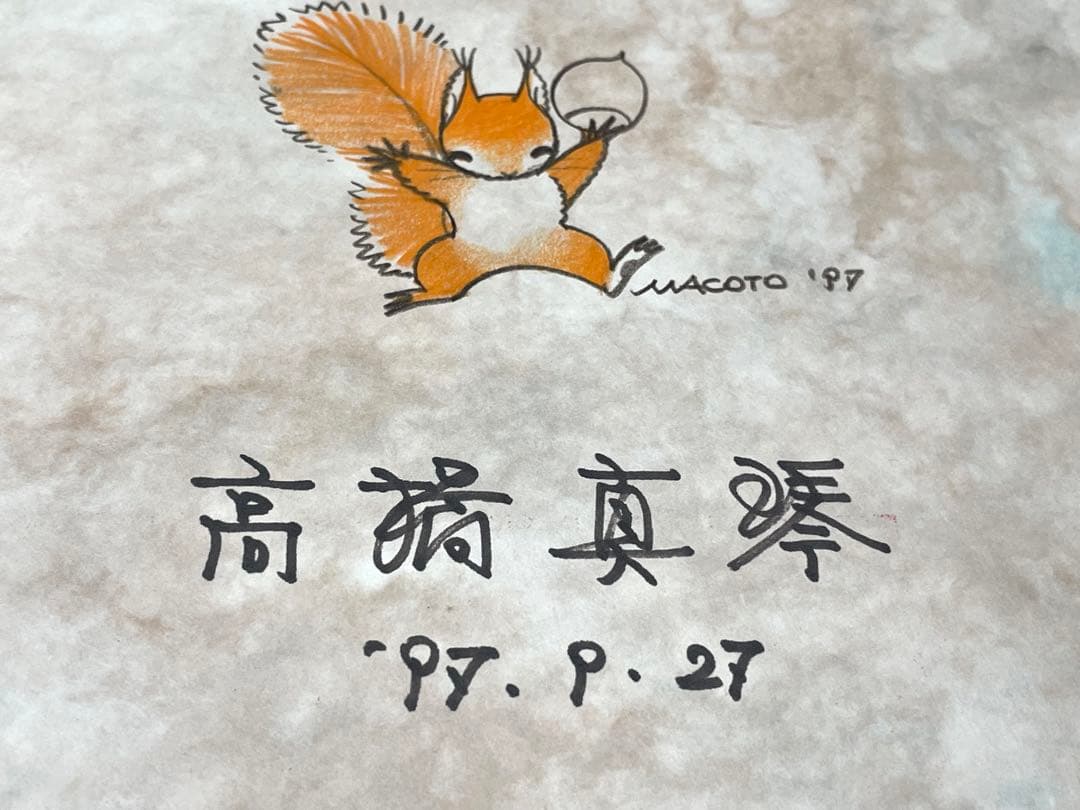 MACOTO '97
高橋真琴
'97.9.27